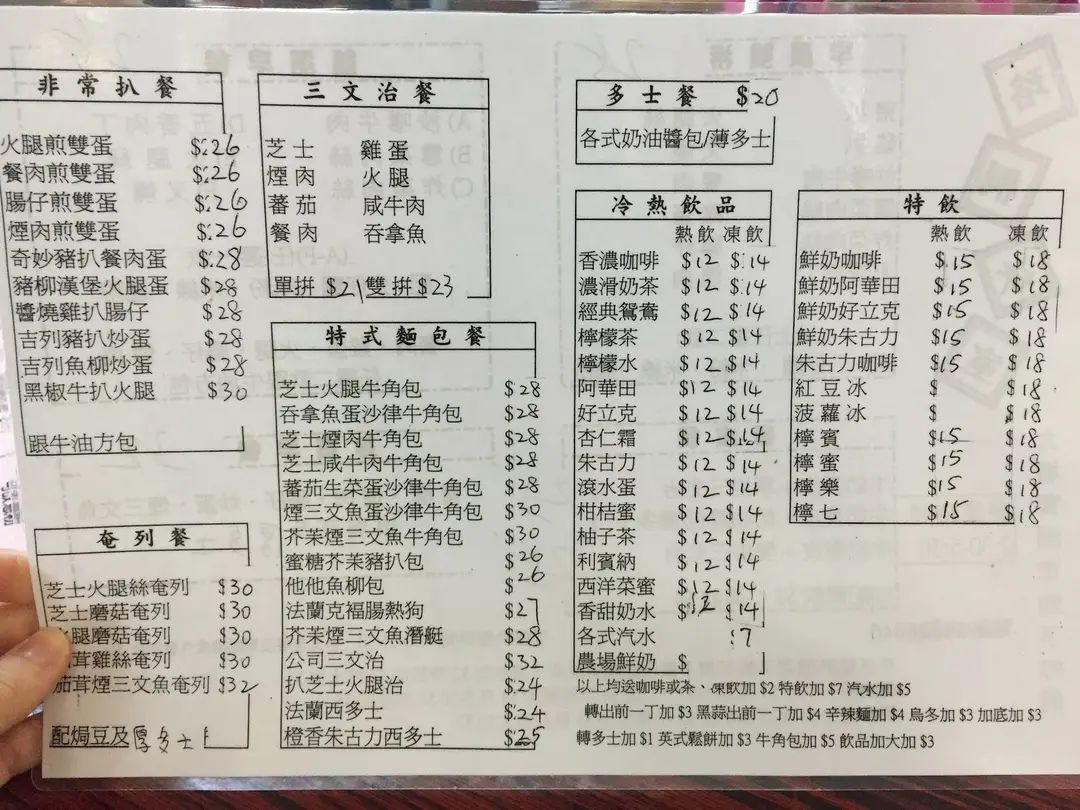 非常扒餐
火腿煎雙蛋 $26
餐肉煎雙蛋 $26
腸仔煎雙蛋 $26
煙肉煎雙蛋 $26
奇妙豬扒餐肉蛋 $28
豬柳漢堡火腿蛋 $28
醬燒雞扒腸仔 $28
吉列豬扒炒蛋 $28
吉列魚柳炒蛋 $28
黑椒牛扒火腿 $30
跟牛油方包
奄列餐
芝士火腿絲奄列 $30
芝士磨菇奄列 $30
腿磨菇奄列 $30
茸雞絲奄列 $30
茄茸煙三文魚奄列 $32
配焗豆及厚多士
三文治餐
芝士 雞蛋
煙肉 火腿
蕃茄 咸牛肉
餐肉 吞拿魚
單拼 $21 雙拼 $23
特式麵包餐
芝士火腿牛角包 $28
吞拿魚蛋沙律牛角包 $28
芝士煙肉牛角包 $28
芝士咸牛肉牛角包 $28
蕃茄生菜蛋沙律牛角包 $28
煙三文魚蛋沙律牛角包 $30
芥茉煙三文魚牛角包 $30
蜜糖芥茉豬扒包 $26
他他魚柳包 $26
法蘭克福腸熱狗 $27
芥茉煙三文魚潛艇 $28
公司三文治 $32
扒芝士火腿治 $24
法蘭西多士 $24
橙香朱古力西多士 $25
多士餐 $20
各式奶油醬包/薄多士
冷熱飲品
熱飲 凍飲
香濃咖啡 $12 $14
濃滑奶茶 $12 $14
經典鴛鴦 $12 $14
檸檬茶 $12 $14
檸檬水 $12 $14
阿華田 $12 $14
好立克 $12 $14
杏仁霜 $12 $14
朱古力 $12 $14
滾水蛋 $12 $14
柑桔蜜 $12 $14
柚子茶 $12 $14
利賓納 $12 $14
西洋菜蜜 $12 $14
香甜奶水 $12 $14
各式汽水 $7
農場鮮奶 $
特飲
熱飲 凍飲
鮮奶咖啡 $15 $18
鮮奶阿華田 $15 $18
鮮奶好立克 $15 $18
鮮奶朱古力 $15 $18
朱古力咖啡 $15 $18
紅豆冰 $ $18
菠蘿冰 $ $18
檸賓 $15 $18
檸蜜 $15 $18
檸樂 $15 $18
檸七 $15 $18
以上均送咖啡或茶、凍飲加 $2 特飲加 $7 汽水加 $5
轉出前一丁加 $3 黑蒜出前一丁加 $4 辛辣麵加 $4 烏冬加 $3 加底加 $3
轉多士加 $1 英式鬆餅加 $3 牛角包加 $5 飲品加大加 $3